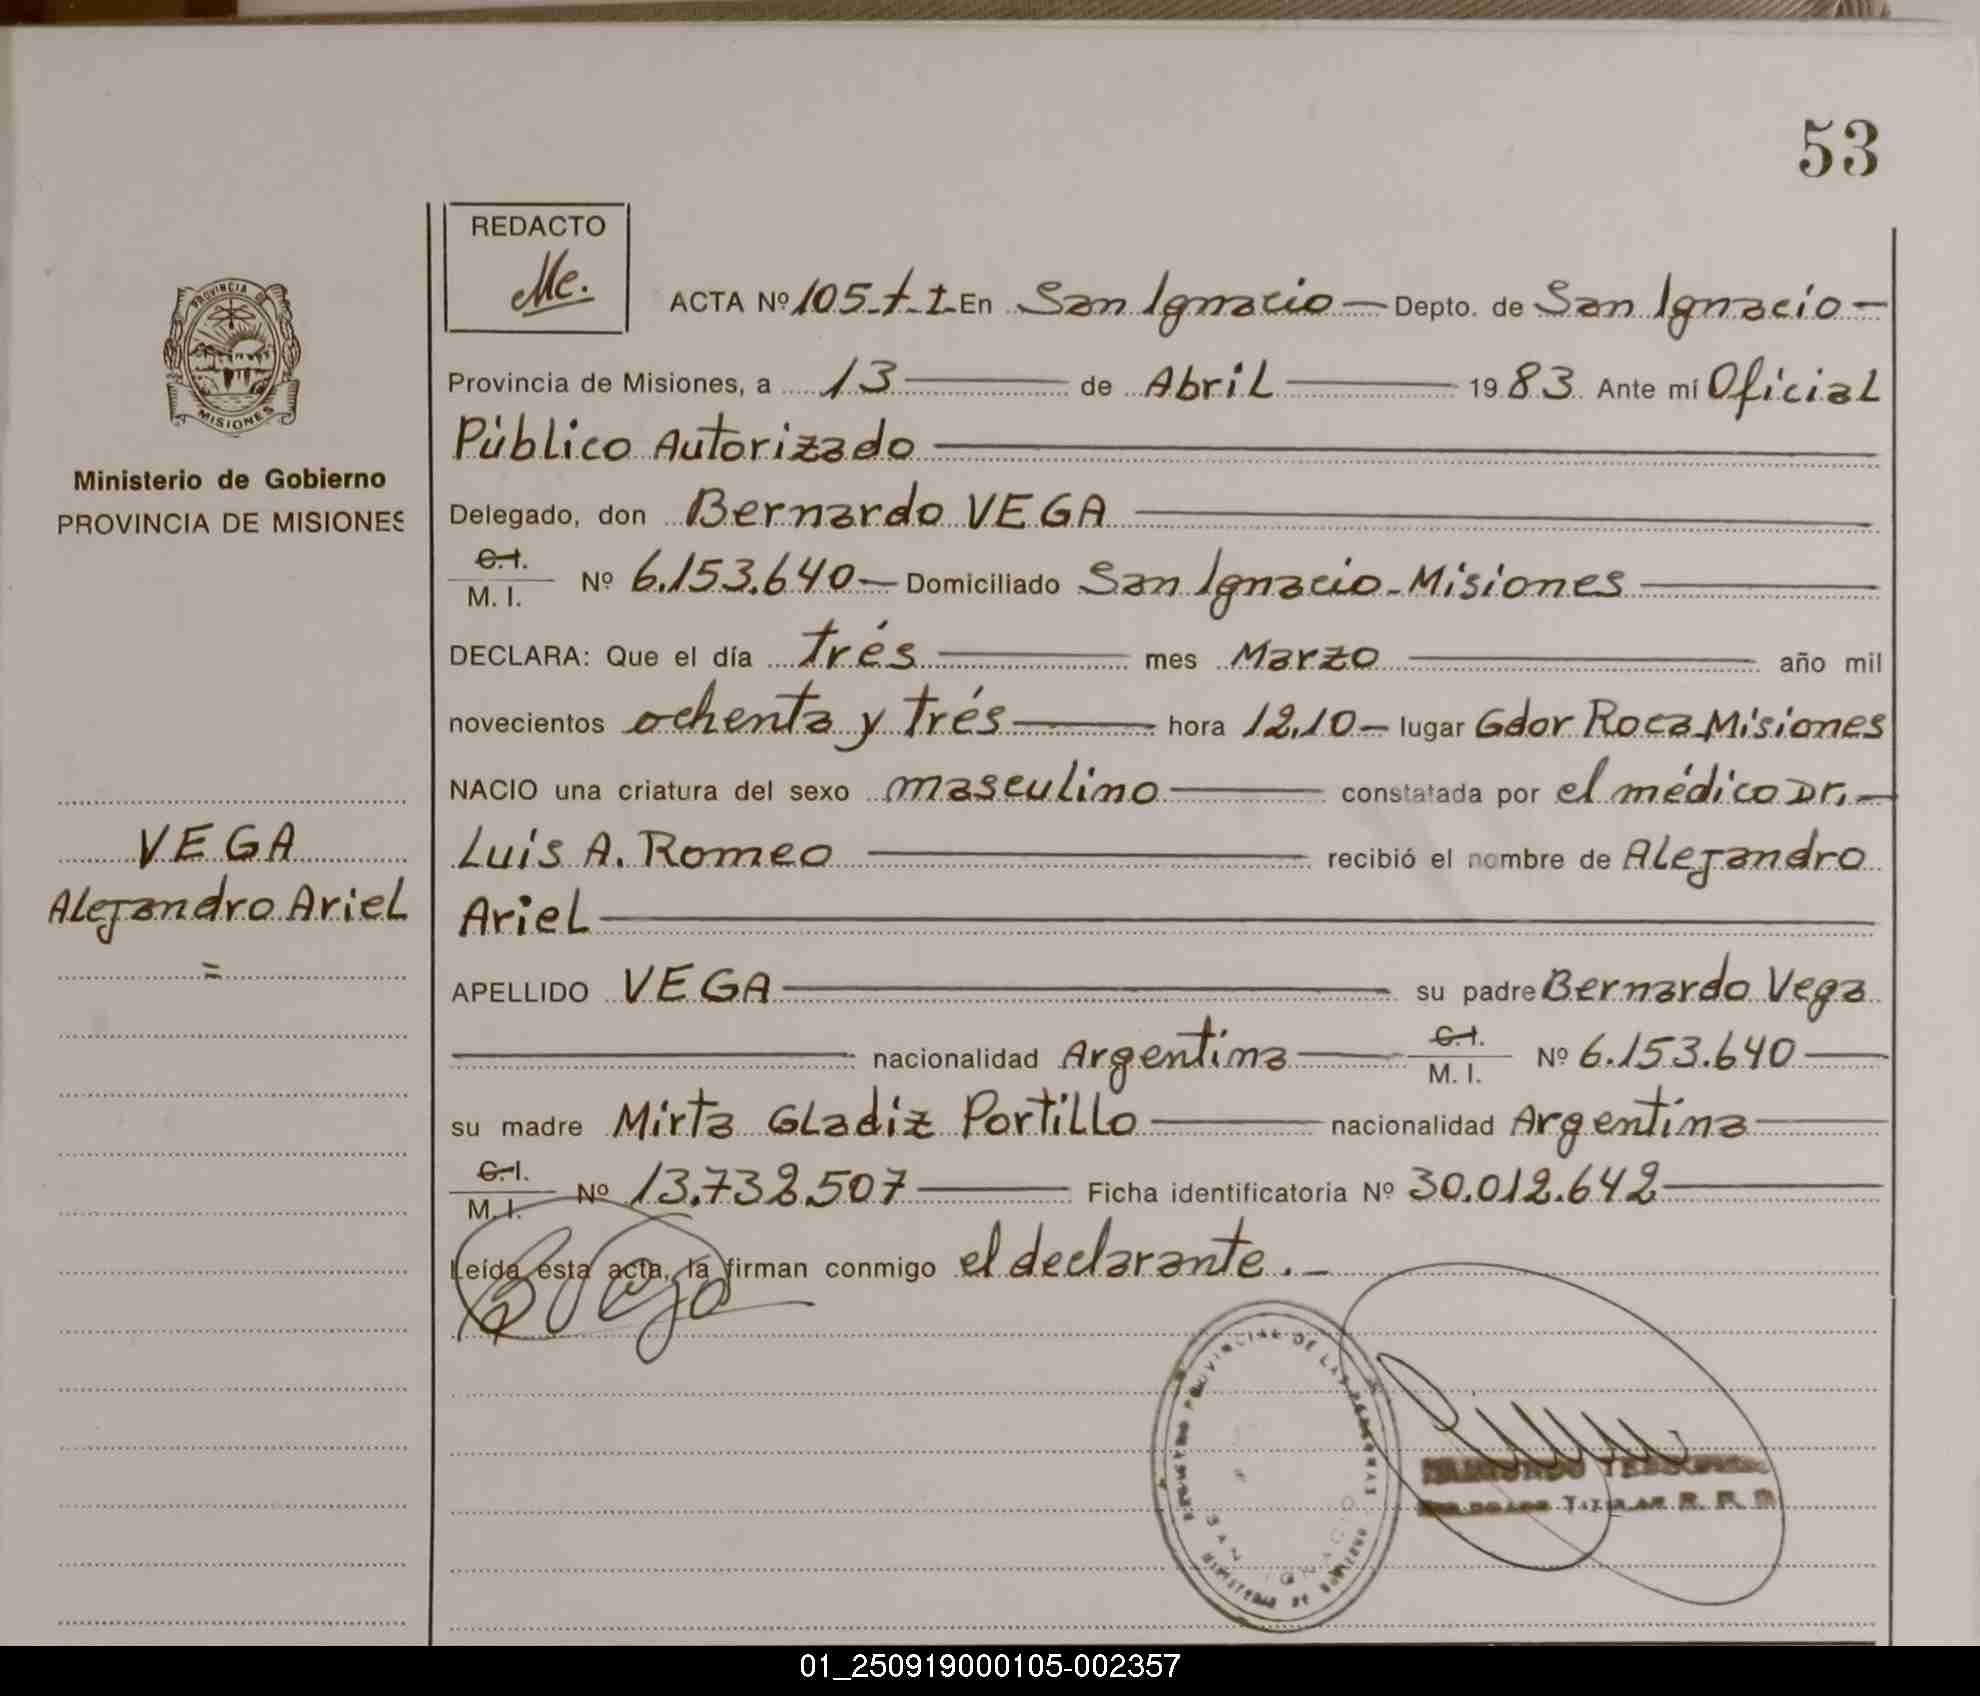 53
REDACTO
Me.
PROVINCIA DE
MISIONES
Ministerio de Gobierno
PROVINCIA DE MISIONES
VEGA
Alejandro Ariel
=
ACTA Nº 105-t-I- En San Ignacio — Depto. de San Ignacio —
Provincia de Misiones, a 13 — de Abril — 1983. Ante mí Oficial
Público Autorizado —
Delegado, don Bernardo VEGA —
C.I.
M. I. Nº 6.153.640 — Domiciliado San Ignacio - Misiones —
DECLARA: Que el día trés — mes Marzo — año mil
novecientos ochenta y trés — hora 12,10 — lugar Gdor Roca Misiones
NACIO una criatura del sexo masculino — constatada por el médico Dr. —
Luis A. Romeo — recibió el nombre de Alejandro
Ariel —
APELLIDO VEGA — su padre Bernardo Vega
— nacionalidad Argentina — C.I.
M. I. Nº 6.153.640 —
su madre Mirta Gladiz Portillo — nacionalidad Argentina —
C.I.
M. I. Nº 13.732.507 — Ficha identificatoria Nº 30.012.642 —
Leída esta acta, la firman conmigo el declarante . —
REGISTRO PROVINCIAL DE LAS PERSONAS
SAN IGNACIO
MINISTERIO DE GOBIERNO
TITULAR R. P. P.
01_250919000105-002357